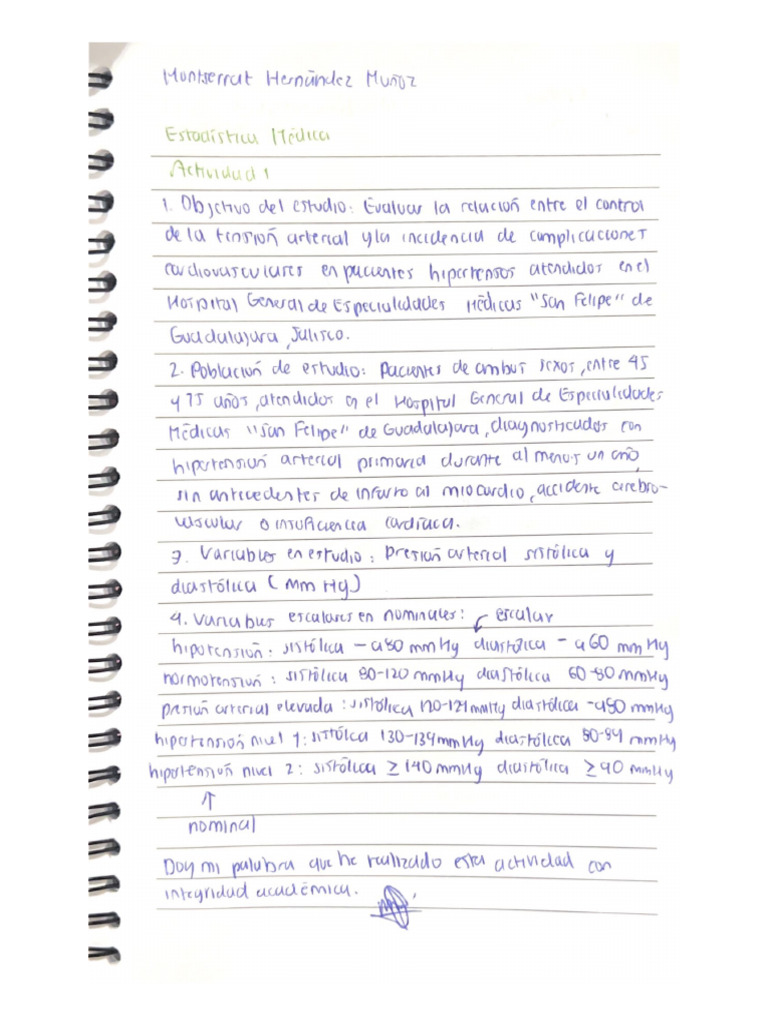 Montserrat Hernández Muñoz
Estadística Médica
Actividad 1
1. Objetivo del estudio: Evaluar la relación entre el control
de la tensión arterial y la incidencia de complicaciones
cardiovasculares en pacientes hipertensos atendidos en el
Hospital General de Especialidades Médicas "San Felipe" de
Guadalajara, Jalisco.
2. Población de estudio: Pacientes de ambos sexos, entre 45
y 75 años, atendidos en el Hospital General de Especialidades
Médicas "San Felipe" de Guadalajara, diagnosticados con
hipertensión arterial primaria durante al menos un año,
sin antecedentes de infarto al miocardio, accidente cerebro-
vascular o insuficiencia cardíaca.
3. Variables en estudio: Presión arterial sistólica y
diastólica (mm Hg)
4. Variables escalares en nominales: escalar
hipotensión: sistólica - a 80 mmHg diastólica - a 60 mmHg
normotensión: sistólica 80-120 mmHg diastólica 60-80 mmHg
presión arterial elevada: sistólica 120-129 mmHg diastólica - a 80 mmHg
hipertensión nivel 1: sistólca 130-139 mmHg diastólica 80-89 mmHg
hipotensión nivel 2: sistólica ≥ 140 mmHg diastólica ≥ 90 mmHg
nominal
Doy mi palabra que he realizado esta actividad con
integridad académica.